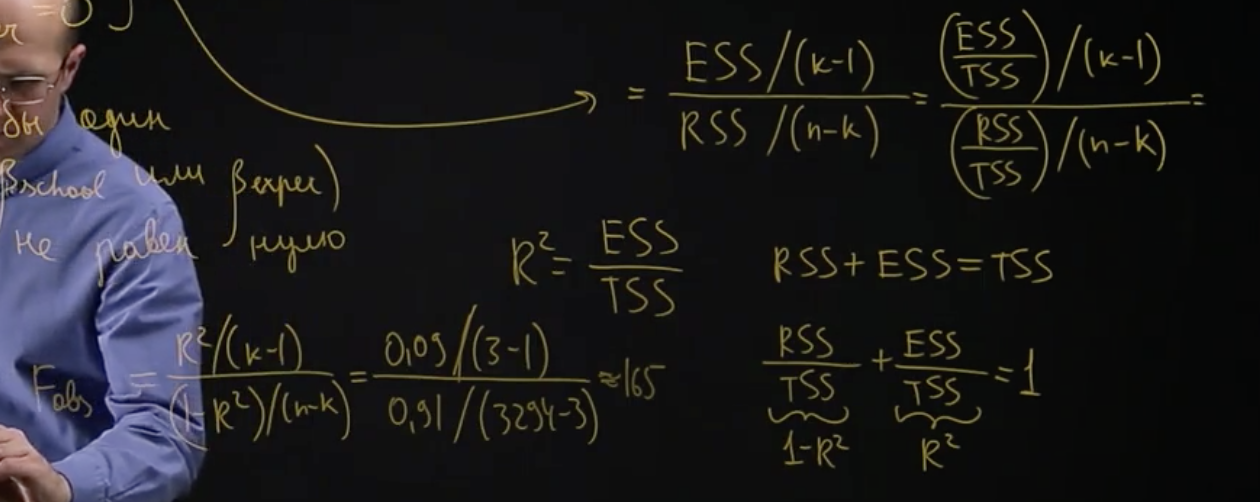 r = 0 }
= ESS/(k-1) / RSS/(n-k) = (ESS/TSS)/(k-1) / (RSS/TSS)/(n-k) =
бы один
βschool или βexper)
не равен нулю
R² = ESS/TSS
RSS + ESS = TSS
F_obs = R²/(k-1) / (1-R²)/(n-k) = 0,09/(3-1) / 0,91/(3294-3) ≈ 165
RSS/TSS + ESS/TSS = 1
1-R² R²